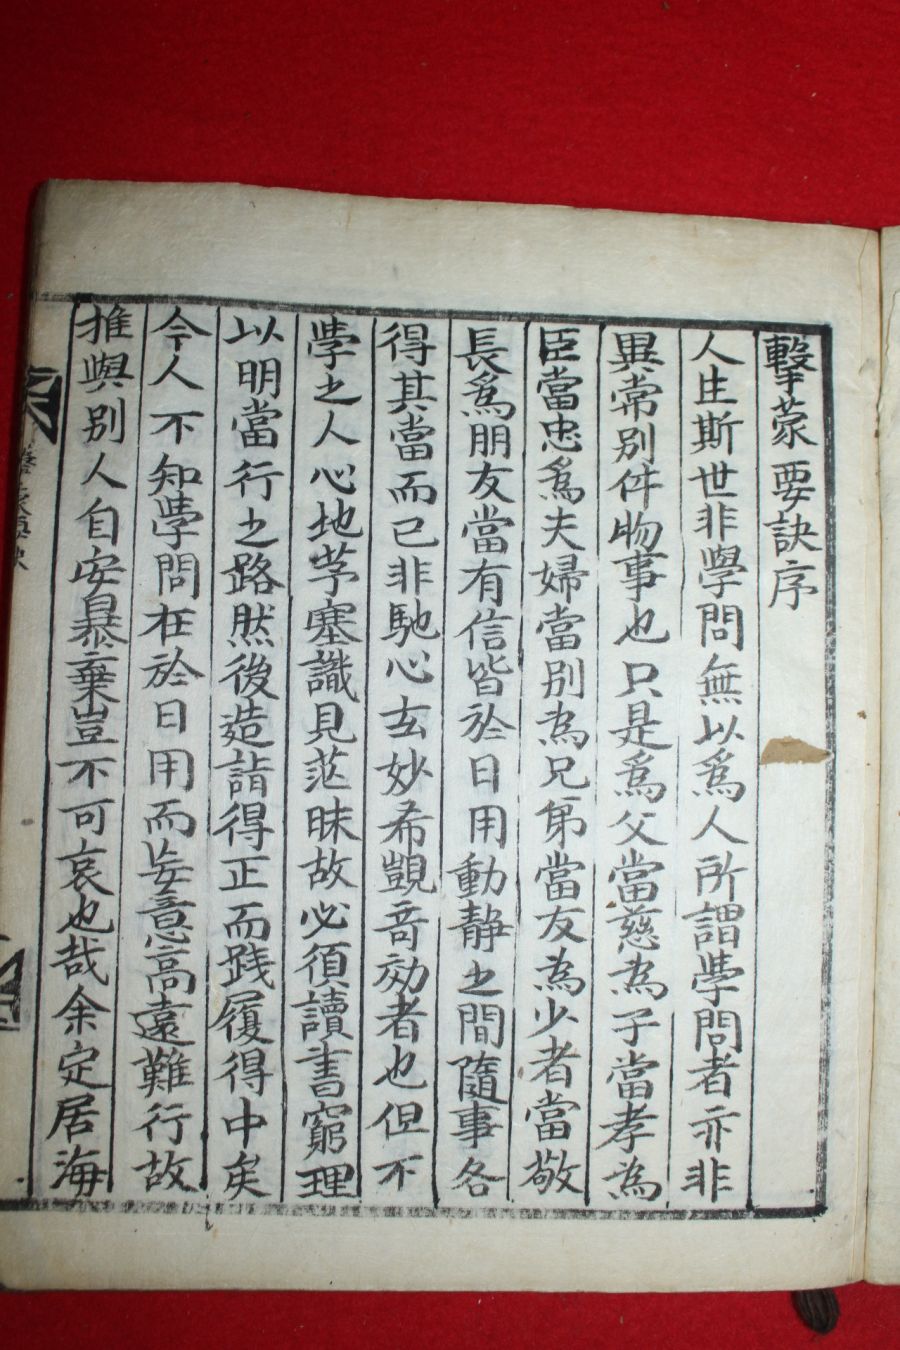 擊蒙要訣序
人生斯世非學問無以爲人所謂學問者亦非
異常別件物事也只是爲父當慈為子當孝為
臣當忠爲夫婦當別為兄弟當友為少者當敬
長爲朋友當有信皆於日用動靜之間隨事各
得其當而已非馳心玄妙希覬奇效者也但不
學之人心地茅塞識見茫昧故必須讀書窮理
以明當行之路然後造詣得正而踐履得中矣
今人不知學問在於日用而妄意高遠難行故
推與別人自安暴棄豈不可哀也哉余定居海
擊蒙要訣